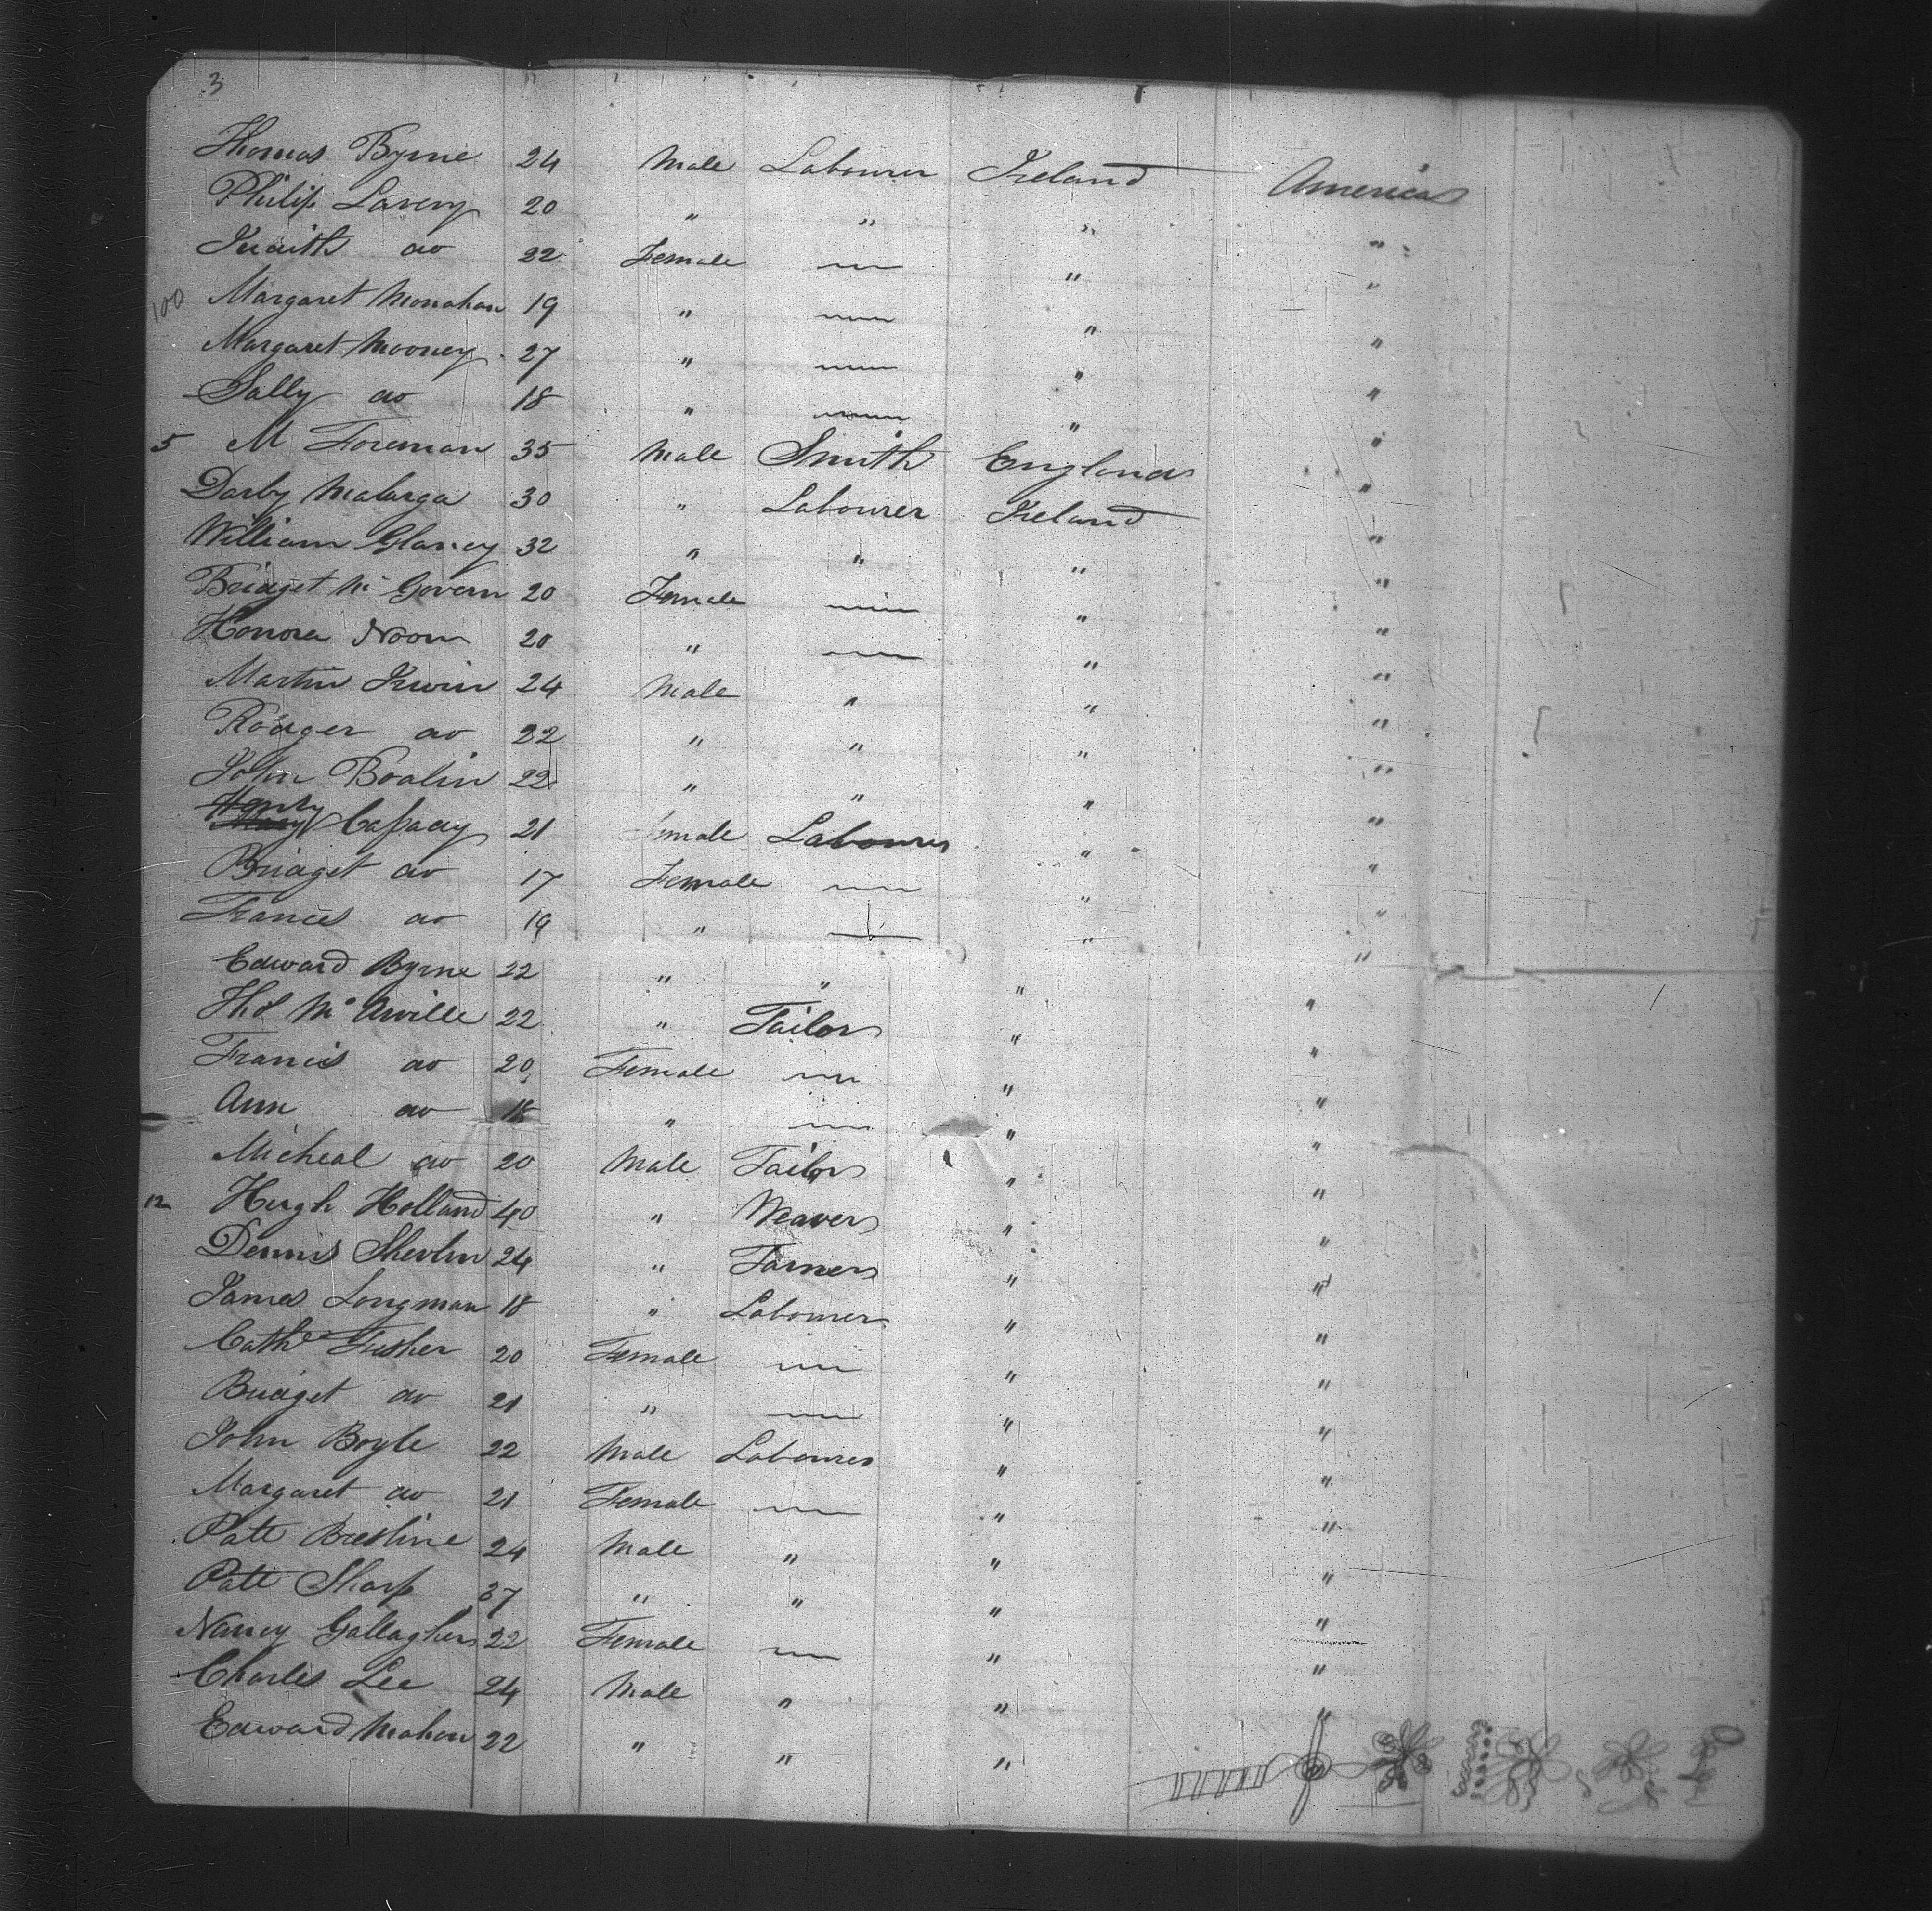 3
Thomas Byrne 24 Male Labourer Ireland America
Philip Lavery 20 " " " "
Judith do 22 Female — " "
100 Margaret Monahan 19 " — " "
Margaret Mooney 27 " — " "
Sally do 18 " — " "
5 M Foreman 35 Male Smith England "
Darby Malarga 30 " Labourer Ireland "
William Glancy 32 " " " "
Bridget Mc Govern 20 Female — " "
Honora Noon 20 " — " "
Martin Irwin 24 Male " " "
Rodger do 22 " " " "
John Boalin 22 " " " "
Henry Cassady 21 male Labourer " "
Bridget do 17 Female — " "
Frances do 19 " — " "
Edward Byrne 22 " " " "
Thos Mc Arville 22 " Tailor " "
Francis do 20 Female — " "
Ann do 18 " — " "
Micheal do 20 Male Tailor " "
12 Hugh Holland 40 " Weaver " "
Dennis Shevlin 24 " Farmer " "
James Longman 18 " Labourer " "
Cathe Fusher 20 Female — " "
Bridget do 21 " — " "
John Boyle 22 Male Labourer " "
Margaret do 21 Female — " "
Patt Bresline 24 Male " " "
Patt Sharp 37 " " " "
Nancy Gallagher 22 Female — " "
Charles Lee 24 Male " " "
Edward Mahon 22 " " "